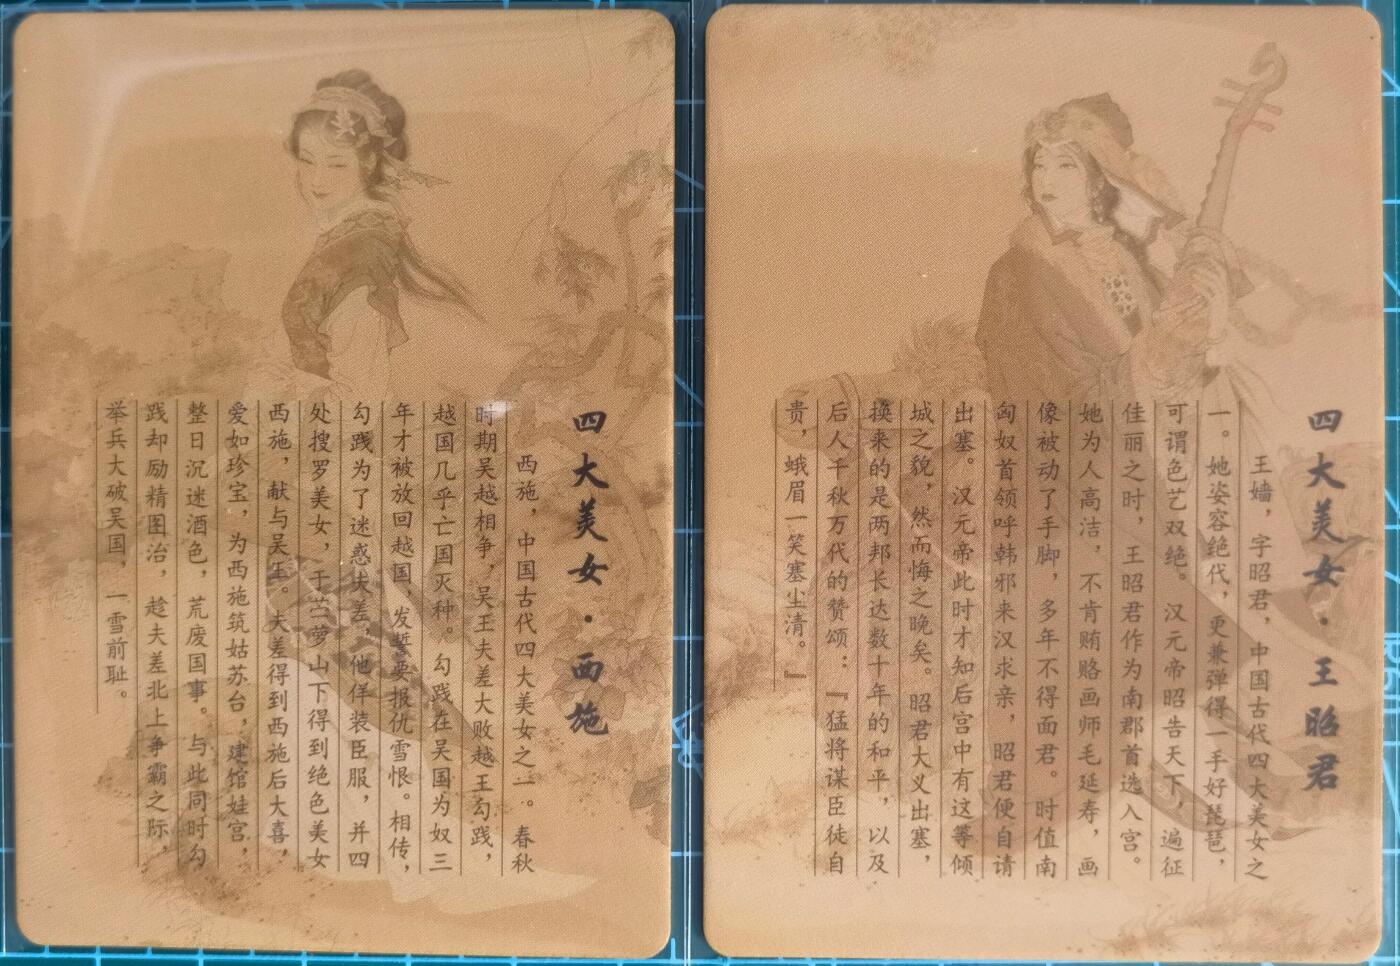 四大美女·西施
西施，中国古代四大美女之一。春秋
时期吴越相争，吴王夫差大败越王勾践，
越国几乎亡国灭种。勾践在吴国为奴三
年才被放回越国，发誓要报仇雪恨。相传，
勾践为了迷惑夫差，他佯装臣服，并四
处搜罗美女，于苎萝山下得到绝色美女
西施，献与吴王。夫差得到西施后大喜，
爱如珍宝，为西施筑姑苏台，建馆娃宫，
整日沉迷酒色，荒废国事。与此同时勾
践却励精图治，趁夫差北上争霸之际，
举兵大破吴国，一雪前耻。
四大美女·王昭君
王嫱，字昭君，中国古代四大美女之
一。她姿容绝代，更兼弹得一手好琵琶，
可谓色艺双绝。汉元帝昭告天下，遍征
佳丽之时，王昭君作为南郡首选入宫。
她为人高洁，不肯贿赂画师毛延寿，画
像被动了手脚，多年不得面君。时值南
匈奴首领呼韩邪来汉求亲，昭君便自请
出塞。汉元帝此时才知后宫中有这等倾
城之貌，然而悔之晚矣。昭君大义出塞，
换来的是两邦长达数十年的和平，以及
后人千秋万代的赞颂：『猛将谋臣徒自
贵，蛾眉一笑塞尘清。』